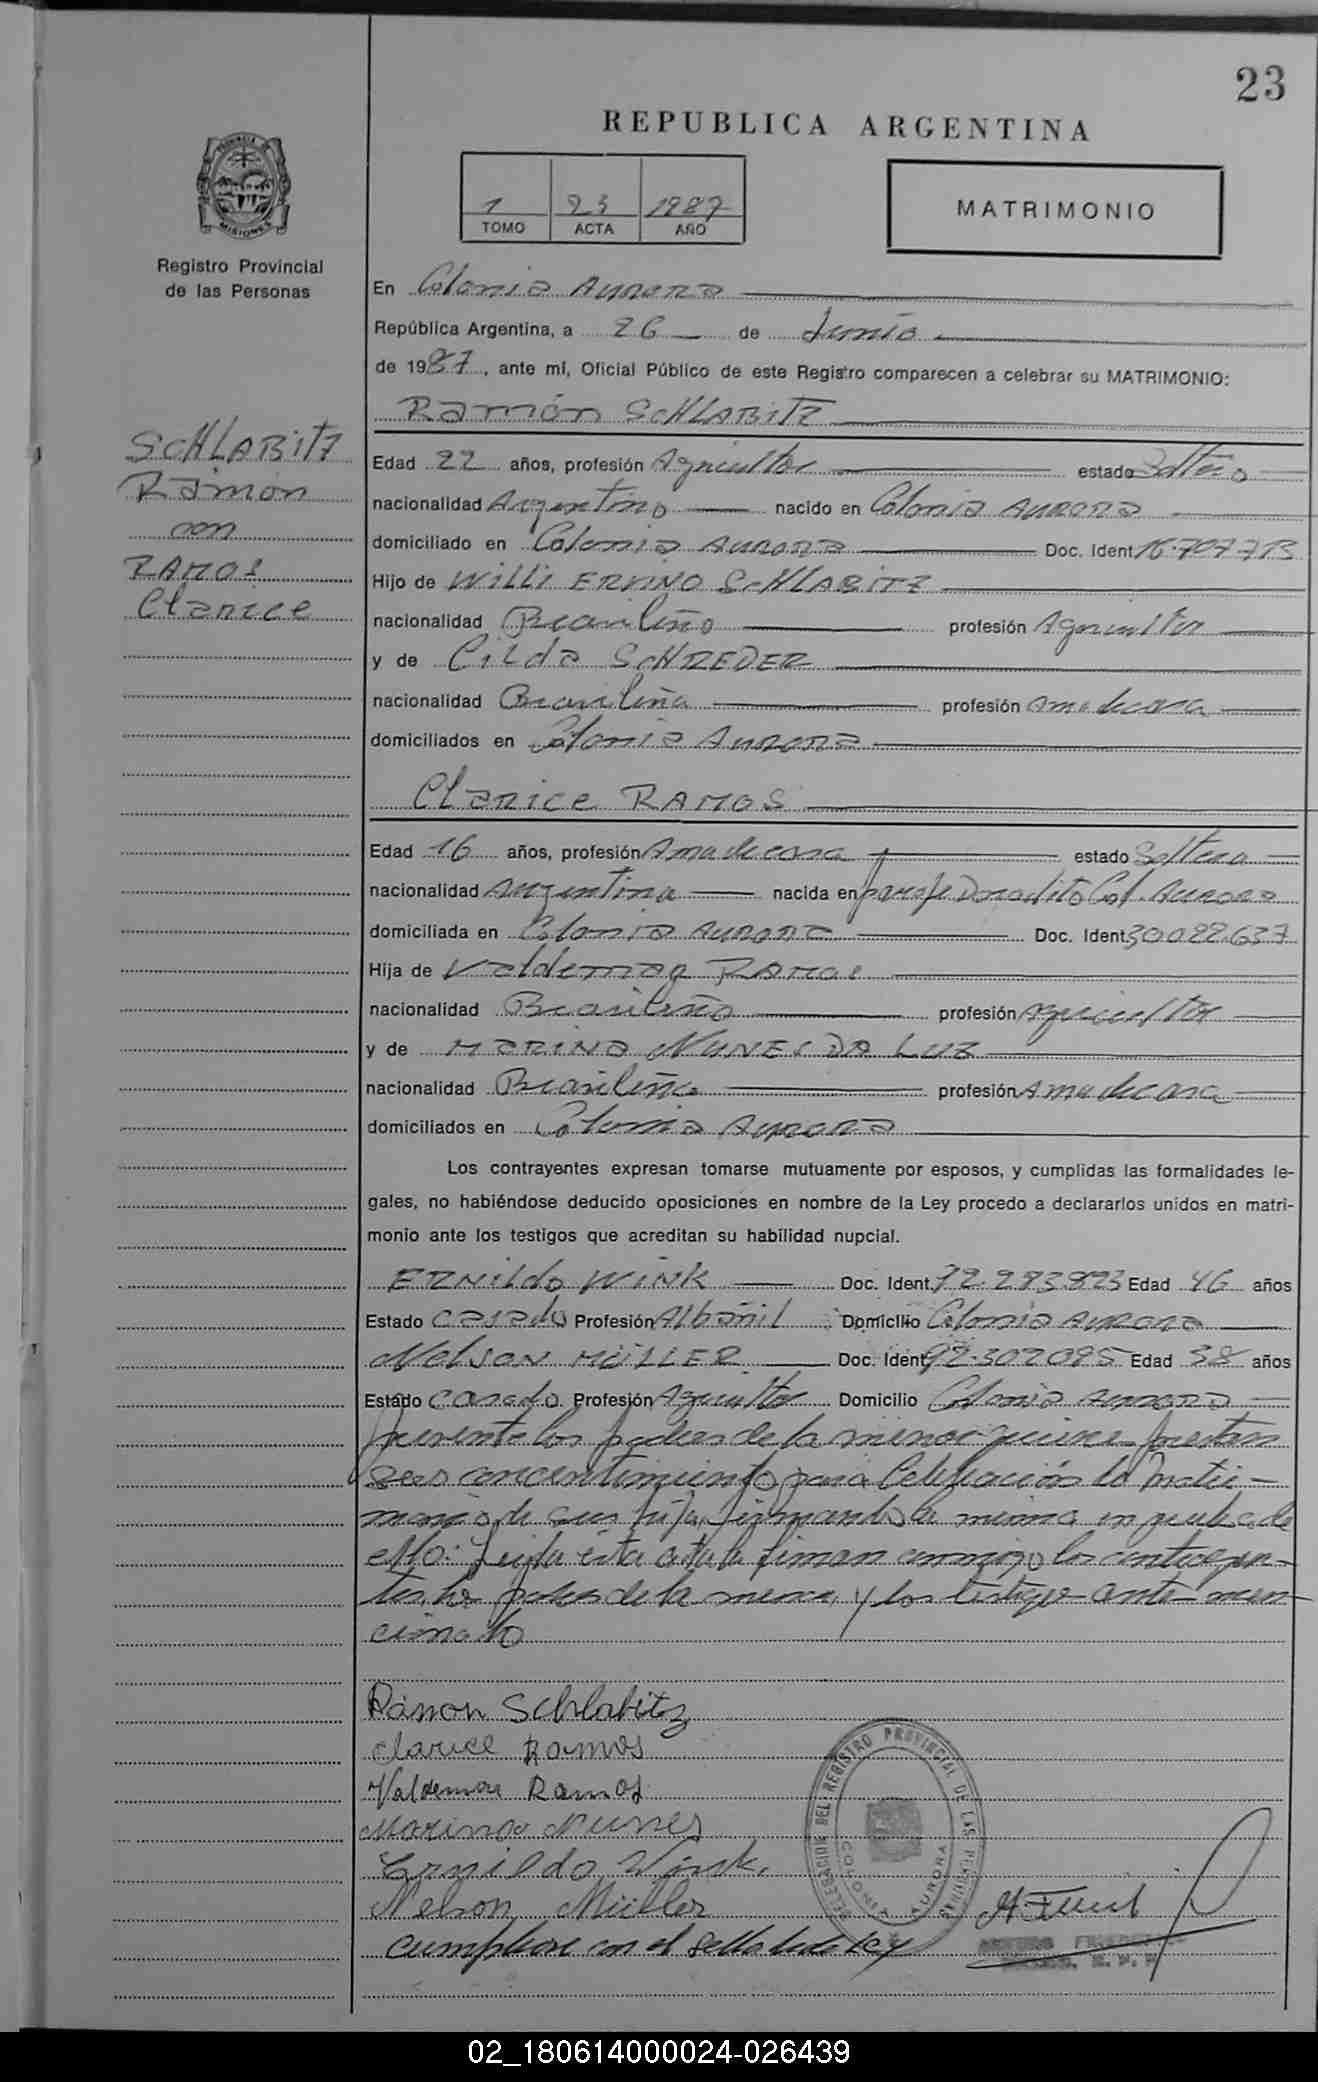 23
REPUBLICA ARGENTINA
PROVINCIA DE
MISIONES
Registro Provincial
de las Personas
1 23 1987
TOMO ACTA AÑO
MATRIMONIO
SCHLABITZ
Ramon
con
RAMOS
Clarice
En Colonia Aurora
República Argentina, a 26 de Junio
de 1987, ante mí, Oficial Público de este Registro comparecen a celebrar su MATRIMONIO:
Ramón SCHLABITZ
Edad 22 años, profesión Agricultor estado Soltero
nacionalidad Argentino nacido en Colonia Aurora
domiciliado en Colonia Aurora Doc. Ident 16.707.713
Hijo de WILLI ERVINO SCHLABITZ
nacionalidad Brasileño profesión Agricultor
y de Cilda SCHREDER
nacionalidad Brasileña profesión Ama de casa
domiciliados en Colonia Aurora
Clarice RAMOS
Edad 16 años, profesión Ama de casa estado Soltera
nacionalidad Argentina nacida en paraje Doradito Col. Aurora
domiciliada en Colonia Aurora Doc. Ident 30.022.637
Hija de Valdemar RAMOS
nacionalidad Brasileño profesión Agricultor
y de Marina NUNES DA LUZ
nacionalidad Brasileña profesión Ama de casa
domiciliados en Colonia Aurora
Los contrayentes expresan tomarse mutuamente por esposos, y cumplidas las formalidades le-
gales, no habiéndose deducido oposiciones en nombre de la Ley procedo a declararlos unidos en matri-
monio ante los testigos que acreditan su habilidad nupcial.
ERNILdo WINK Doc. Ident. Edad 46 años
Estado casado Profesión Albañil Domicilio Colonia Aurora
Nelson MÜLLER Doc. Ident 92.302095 Edad 38 años
Estado casado Profesión Agricultor Domicilio Colonia Aurora
presente los padres de la menor quiene prestan
seus concentimiento para Celebración la Matri-
monio de sus hija, firmando la misma en prueba de
ello: Leida esta acta la firman conmigo los contrayen-
tes, los padres de la menor y los testigo ante men-
cionado
Ramon Schlabitz
Clarice Ramos
Valdemar Ramos
Marina Nunes
Ernildo Wink.
Nelson Müller
cumplase con el sello de ley
DELEGACION DEL REGISTRO PROVINCIAL DE LAS PERSONAS
COLONIA AURORA
02_180614000024-026439